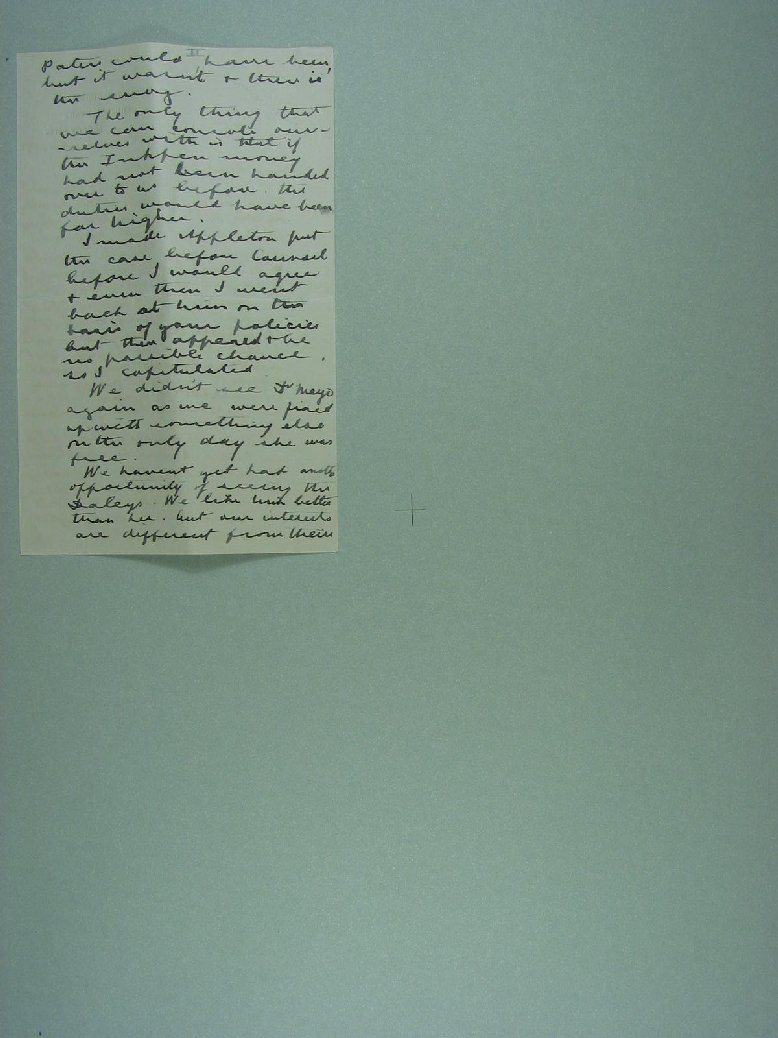 II
Paters could have been,
but it wasn't & there is
the snag.
The only thing that
we can console our-
-selves with is that if
the Inkpen money
had not been handed
over to us before. the
duties would have been
far higher.
I made Appleton put
the case before Counsel
before I would agree
& even then I went
back at him on the
basis of your policies
but there appeared to be
no possible chance,
so I capitulated.
We didn't see Dr Mayo
again as we were fixed
up with something else
on the only day she was
free.
We havent yet had another
opportunity of seeing the
Daleys. We like him better
than her. but our interests
are different from theirs